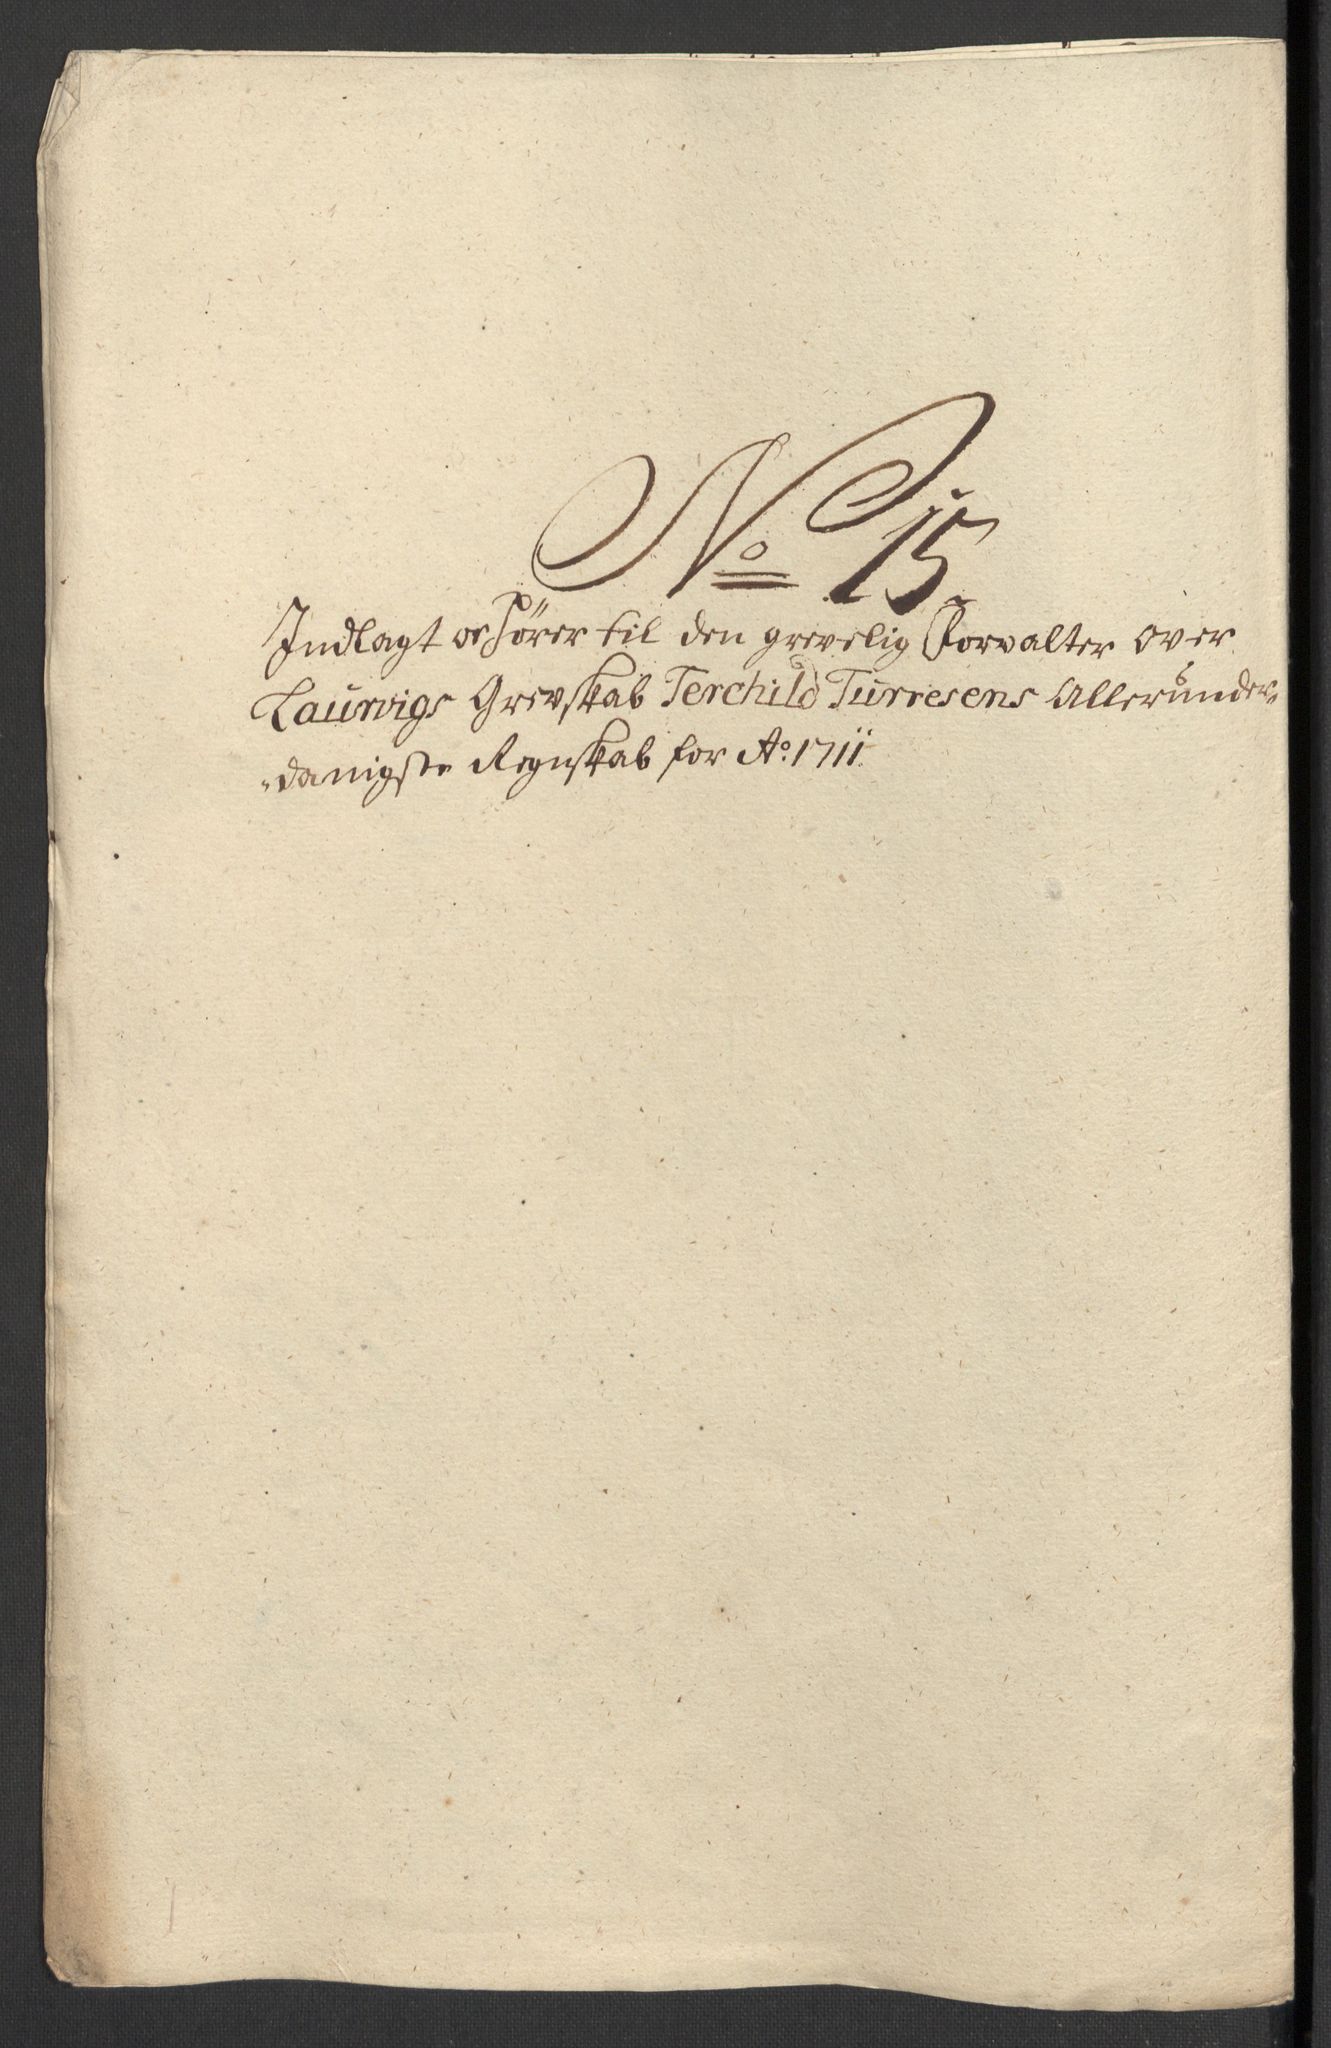 No 15
Indlagt och hører til den grevelig Forvalter over
Laurvigs Grevskab Terchild Turresens Allerunder-
danigste Regnskab for Ao. 1711